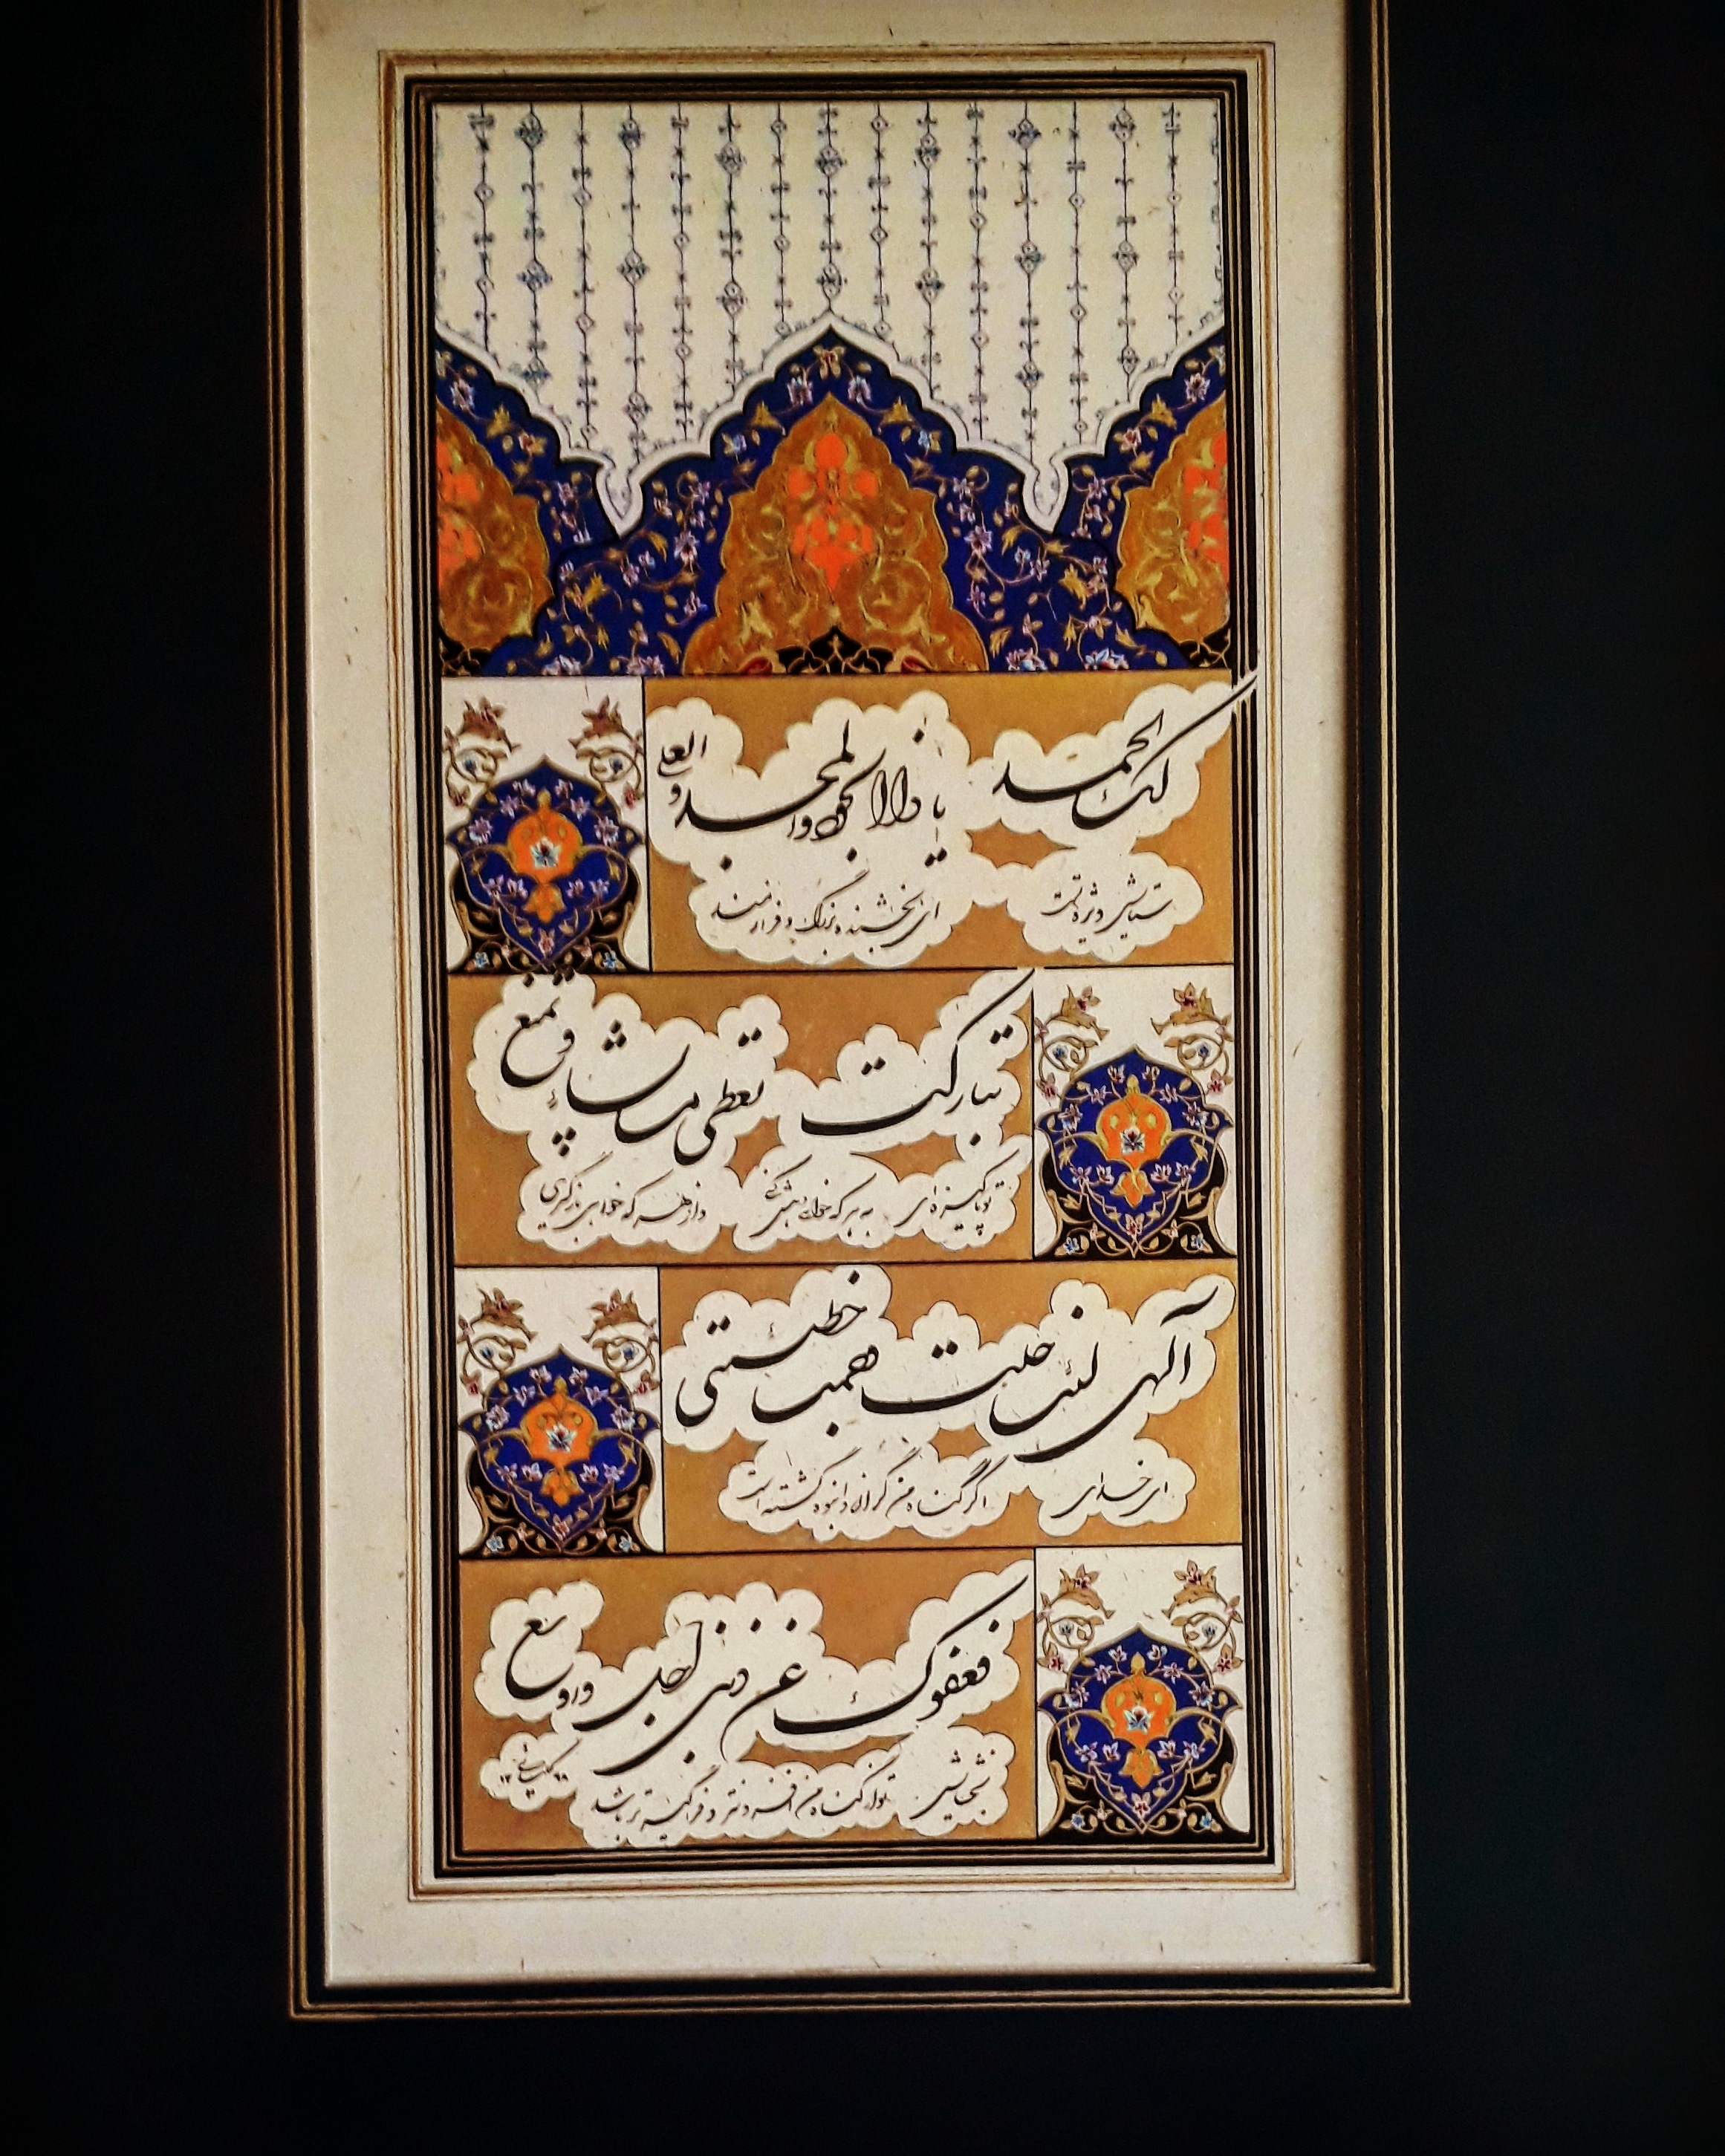 لک الحمد یا ذاالجود والمجد والعلی
ستایش ویژه تست ای بخشنده بزرگ و فرازمند
تبارکت تعطی من تشاء و تمنع
تو پاکیزه‌ای به هر که خواهی بخشش کنی و از هر که خواهی بازگیری
آلهی لئن جلت و جمت خطیئتی
ای خدای اگر گناه من گران و انبوه گشته است
فعفوک عن ذنبی اجل و اوسع
بخشایش تو از گناه من افزونتر و فراگیرتر باشد